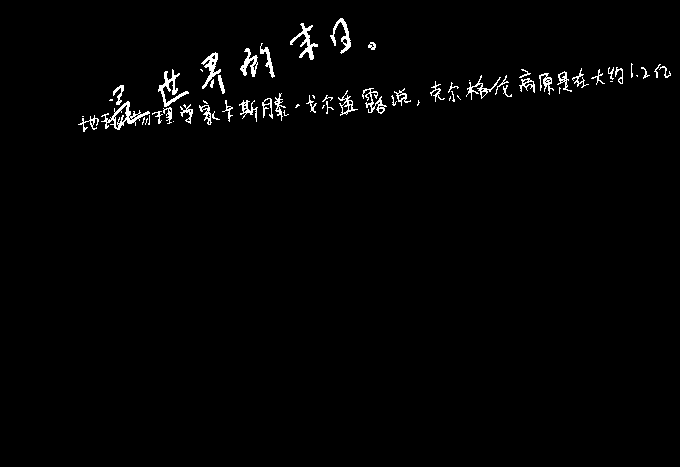 是世界的末日。
地球物理学家卡斯滕·戈尔透露说,克尔格伦高原是在大约1.2亿